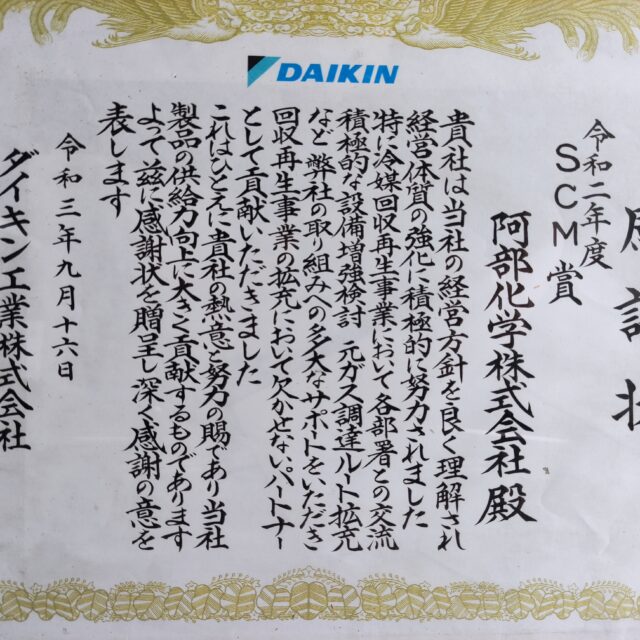 DAIKIN
感謝状
令和二年度
SCM賞
阿部化学株式会社 殿
貴社は当社の経営方針を良く理解され
経営体質の強化に積極的に努力されました
特に冷媒回収再生事業において各部署との交流
積極的な設備増強検討 元ガス調達ルート拡充
など 弊社の取り組みへの多大なサポートをいただき
回収再生事業の拡充において欠かせないパートナー
として貢献いただきました
これはひとえに貴社の熱意と努力の賜であり当社
製品の供給力向上に大きく貢献するものであります
よって玆に感謝状を贈呈し深く感謝の意を
表します
令和三年九月十六日
ダイキン工業株式会社